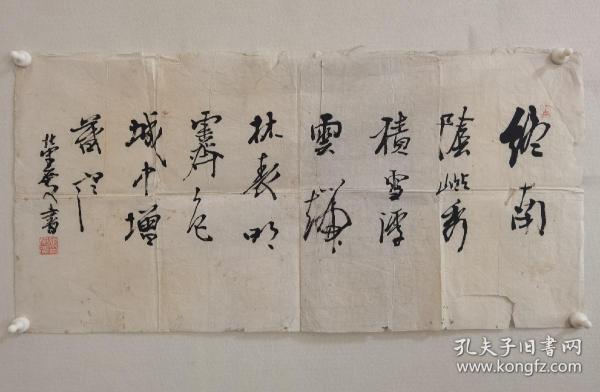 終南
陰嶺秀
積雪浮
雲端
林表明
霽色
城中增
暮寒
書
孔夫子旧书网
www.kongfz.com